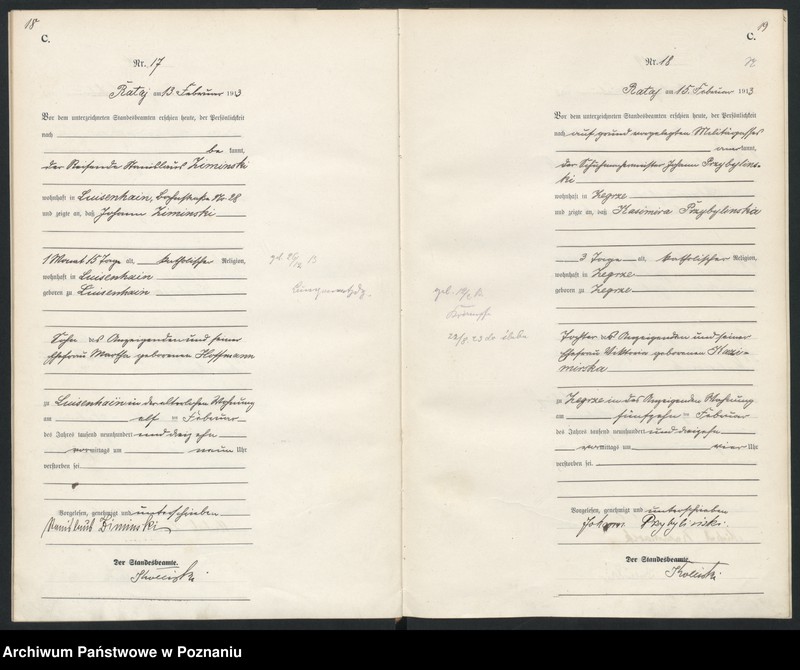 18
C.
Nr. 17
Rataj am 13. Februar 1913
Vor dem unterzeichneten Standesbeamten erschien heute, der Persönlichkeit
nach
be kannt,
der Reisende Stanislaus Ziminski
wohnhaft in Luisenhain, Nr. 28
und zeigte an, daß Johann Ziminski
1 Monat 15 Tage alt, katholischer Religion,
wohnhaft in Luisenhain
geboren zu Luisenhain
Sohn des Anzeigenden und seiner
Ehefrau Martha geborenen Hoffmann
zu Luisenhain in der elterlichen Wohnung
am elf ten Februar
des Jahres tausend neunhundert und dreizehn
vormittags um neun Uhr
verstorben sei
Vorgelesen, genehmigt und unterschrieben
Stanislaus Ziminski
Der Standesbeamte.
19
C.
Nr. 18
Rataj am 15. Februar 1913
Vor dem unterzeichneten Standesbeamten erschien heute, der Persönlichkeit
nach auf grund vorgelegten Militärpasses
aner kannt,
der Schuhmachermeister Johann Przybylins-
ki
wohnhaft in Zegrze
und zeigte an, daß Kasimira Przybylinska
3 Tage alt, katholischer Religion,
wohnhaft in Zegrze
geboren zu Zegrze
Tochter des Anzeigenden und seiner
Ehefrau Viktoria geborenen Kaze-
mirska
zu Zegrze in des Anzeigenden Wohnung
am fünfzehn ten Februar
des Jahres tausend neunhundert und dreizehn
vormittags um vier Uhr
verstorben sei
Vorgelesen, genehmigt und unterschrieben
Johann Przybylinski.
Der Standesbeamte.
Archiwum Państwowe w Poznaniu